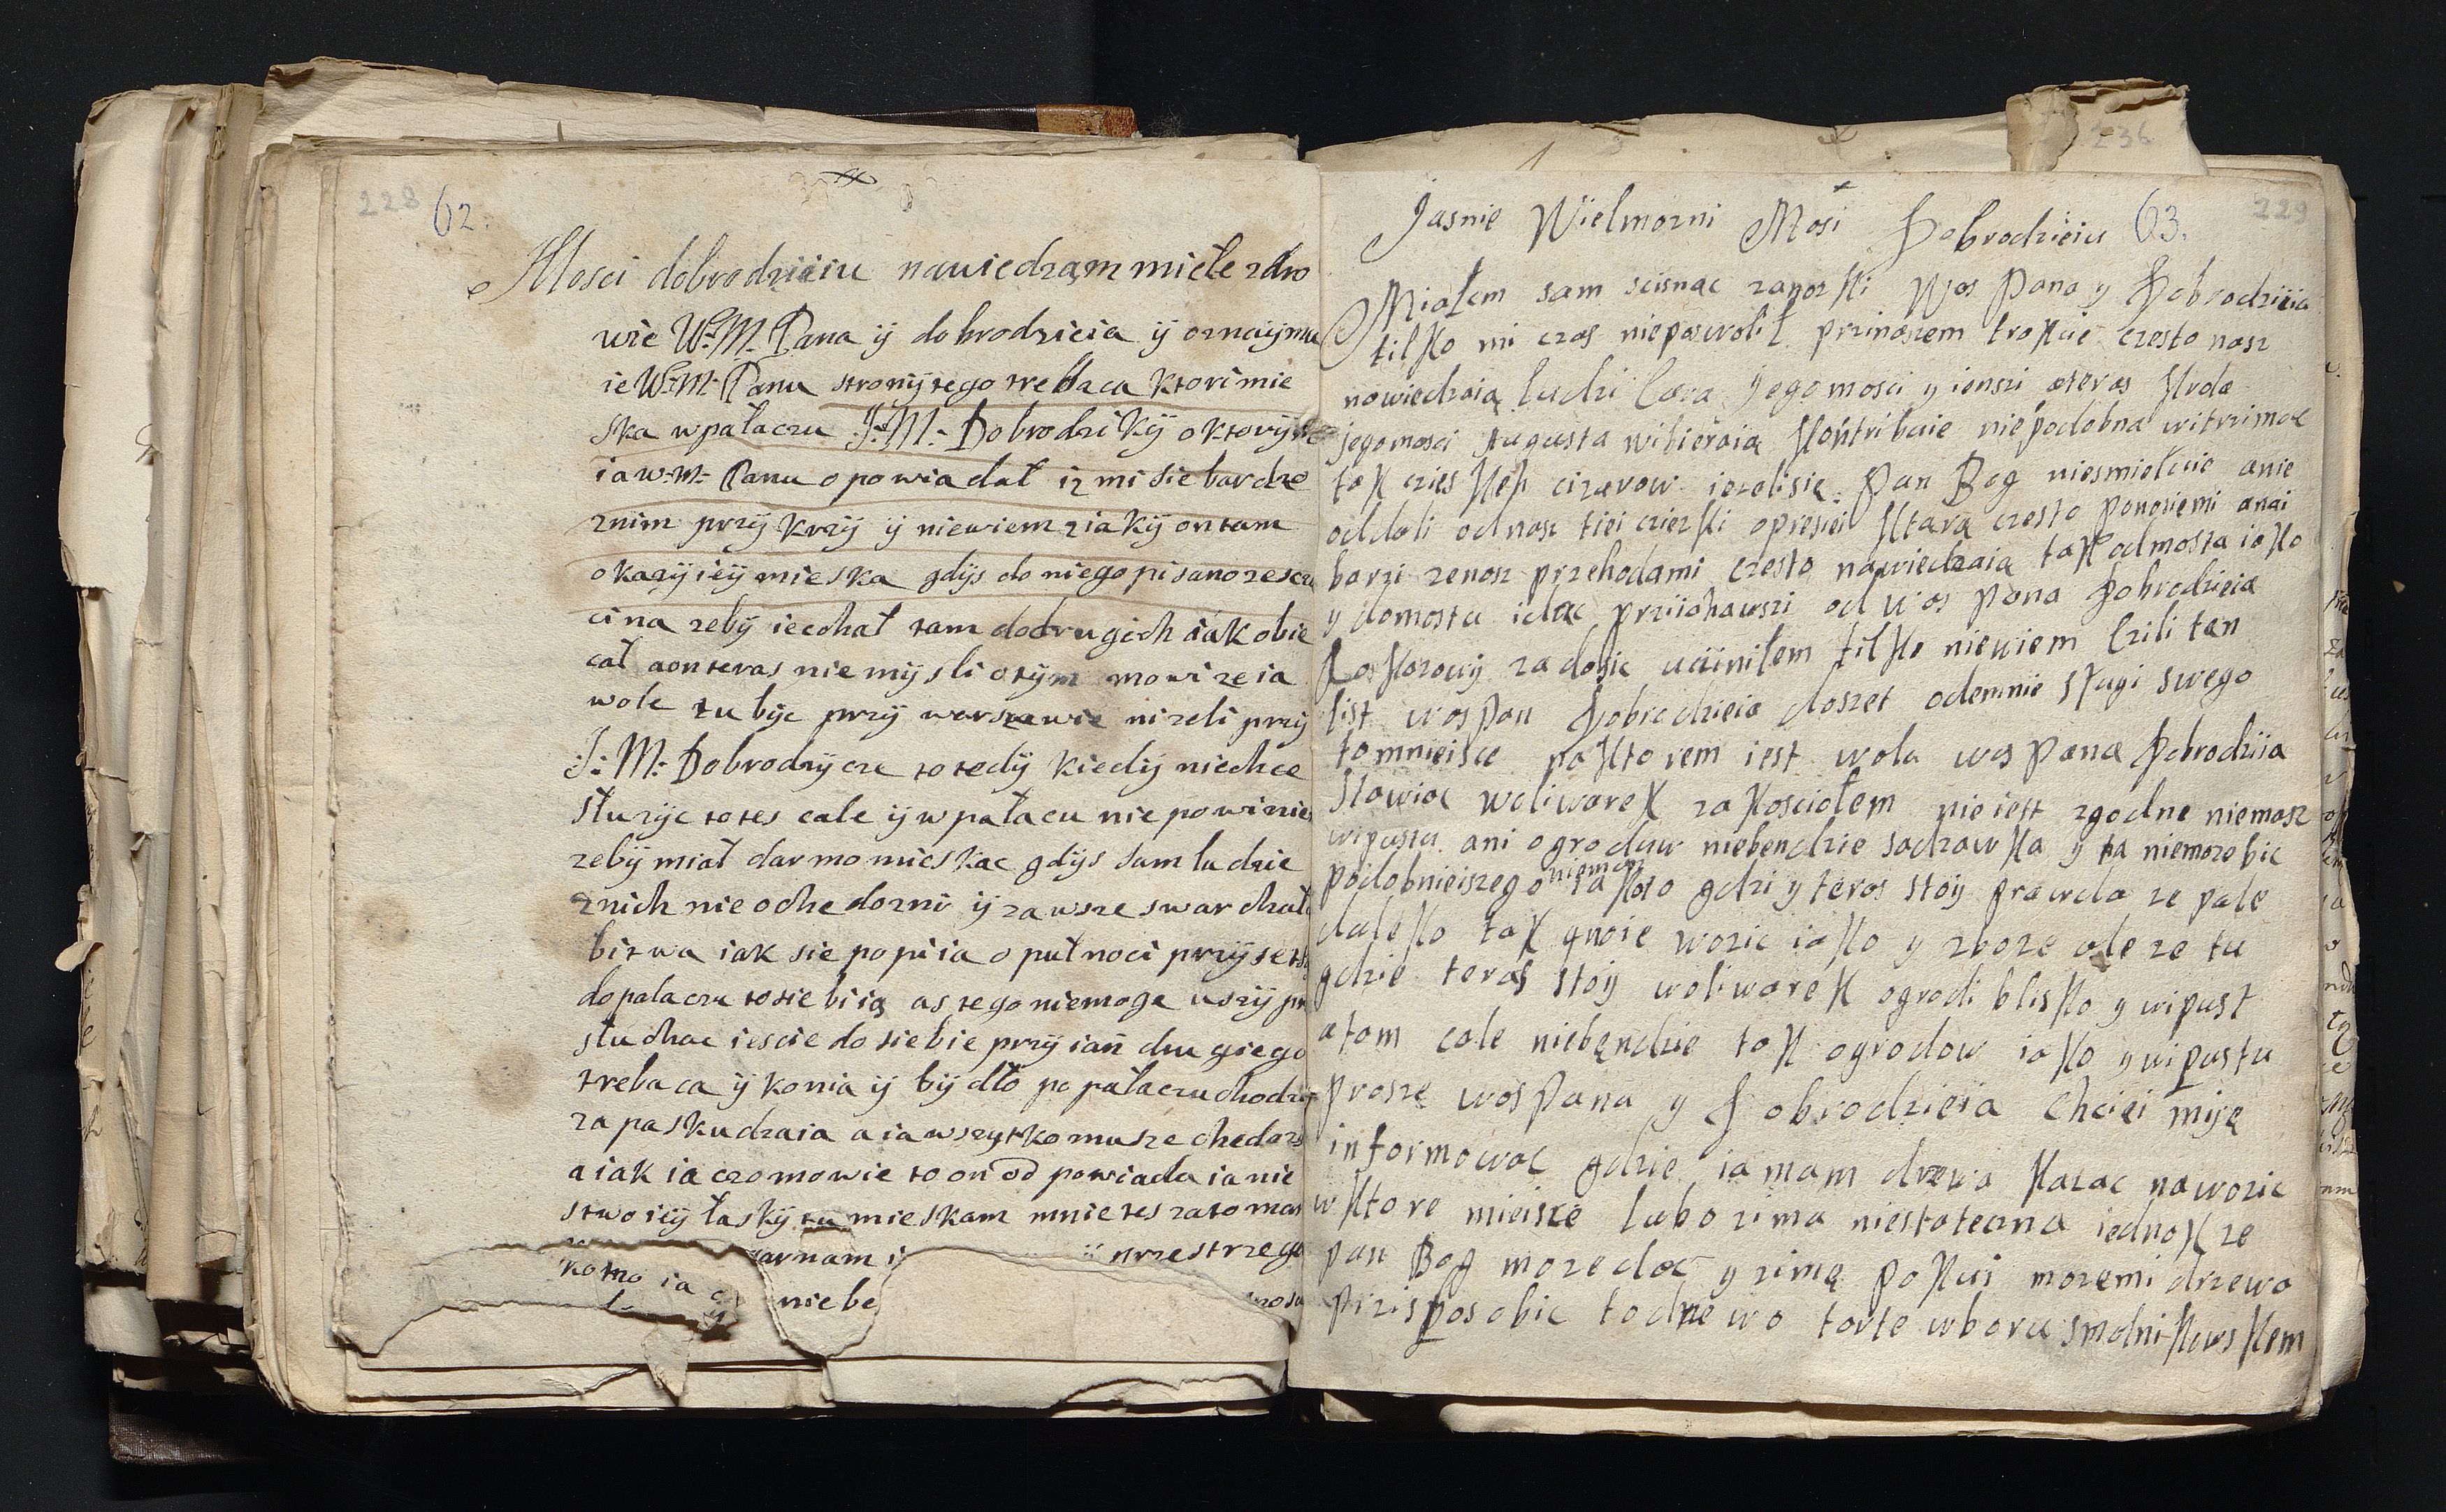 228
62.
Mosci dobrodzieiu nawiedzam miełe zdro
wie W:M: Pana ÿ dobrodzieia ÿ oznaÿmu
ie W:M: Panu stronÿ tego trebaca ktori mie
ska w pałaczu J:M: Dobrodzikÿ o ktorÿm
ia w:m: Panu opowiadał iz mi sie bardzo
znim przÿkrzÿ ÿ niewiem ziakÿ on tam
okazÿieÿ mieska gdÿs do niego pisano zesczu
cina zebÿ iechał tam do drugich iak obie
cał a on teras nie mÿsli o tÿm mowi ze ia
wole tu bÿc przÿ warszawie nizeli przÿ
J: M: Dobrodzÿcze to tedÿ kiedÿ niechce
słuzÿc to tes cale ÿ w pałacu nie powinie
zebÿ miał darmo mieskac gdÿs sam ludzie
znich nie ochedozni ÿ zawsze swar
bitwa iak sie popiia o pułnoci przÿ
do palaczu to sie biią as tego niemoge uszÿ
słuchac iescie do siebie przÿiań drugiego
trebaca ÿ konia ÿ bÿdło po pałaczu chodzÿ
zapaskudzaia a ia wszytko musze chedoz
a iak ia czo mowie to oń od powiada ia nie
stwoiÿ łaskÿ tu mieskam mnie tes zato mas
arnam przestrzego
komo ia
niebe
229
63.
236
Jasnie Wielmozni Mosi Dobrodzieiu
Miałem sam scisnac zanozki Wos Pana y Dobrodzieia
tilko mi czas niepozwolił przinoszem trokcie czesto nasz
nowiedzaią ludzi Cara Jegomosci y ienszi a teras Krola
jegomosci Augusta wibieraia Kontribucie niepodobna witrzimac
tak czieskeh cizarow iezelisie Pan Bog niesmiełuie anie
oddali odnasz tiei cierki opresiei Ktara czesto ponosiemi anai
barzi zenosz przehodami czesto nawiedzaia tak odmosta iako
y domostu idac przijohawszi od Wos Pana Dobrodzieia
Loskozowÿ zadosic uciniłem tilko niewiem Czili ten
list wos Pan Dobrodzieia doszet odemnie sługi swego
tomnieisce naktorem iest wola wos Pana Dobrodziia
Stawiac woliwarek za Kosciołem nieiest zgodne niemasz
wipustu ani ogroduw niebendzie sadzawka y ta niemoze bic
podobnieiszego niemasz iakoto gdzi y teros stoÿ prawda ze pole
daleko tak gnoie wozic iako y zboze ale ze tu
gdzie teras stoÿ woliwarek ogrodi blisko y wipust
atam cale niebendzie tak ogrodow iako y wipustu
prosze wos Pana y Dobrodzieia Chciei mię
informowac gdzie ia mam drzewa Kazac nawozic
w Ktore mieisce lubo zima niestateczna iednok ze
pan Bog moze dac y zimę pokui mozemi drzewo
przisposobic todrzewo torte wboru smolnikowskem